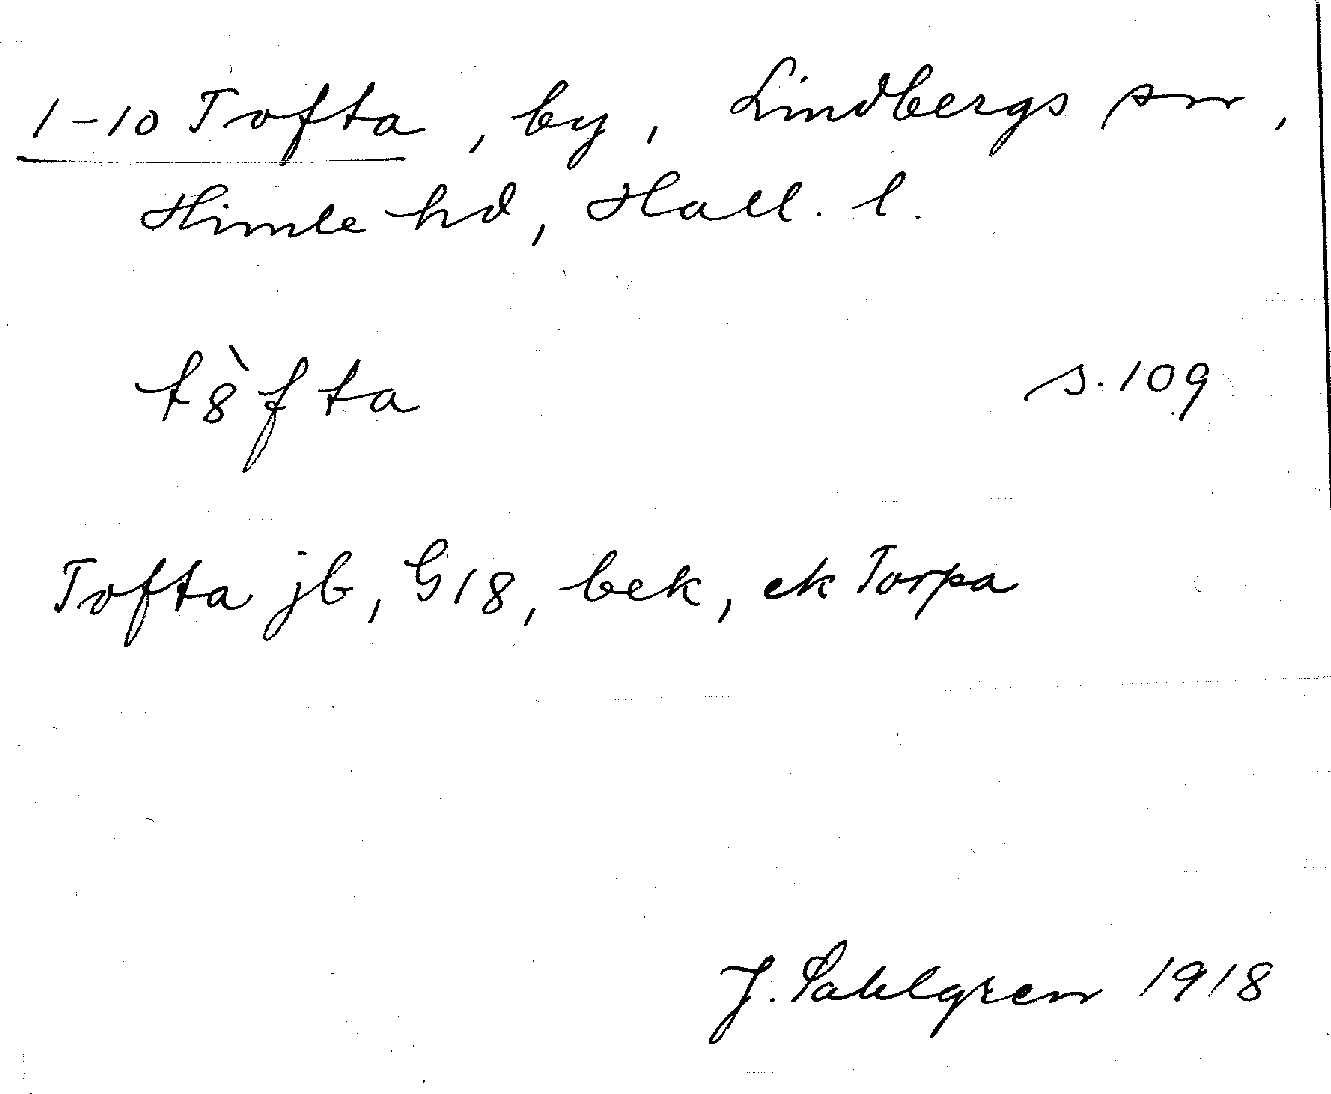 1-10 Tofta, by, Lindbergs sn,
Himle hd, Hall. l.
t8̀fta s. 109
Tofta jb, G18, bek, ek Torpa
J. Sahlgren 1918